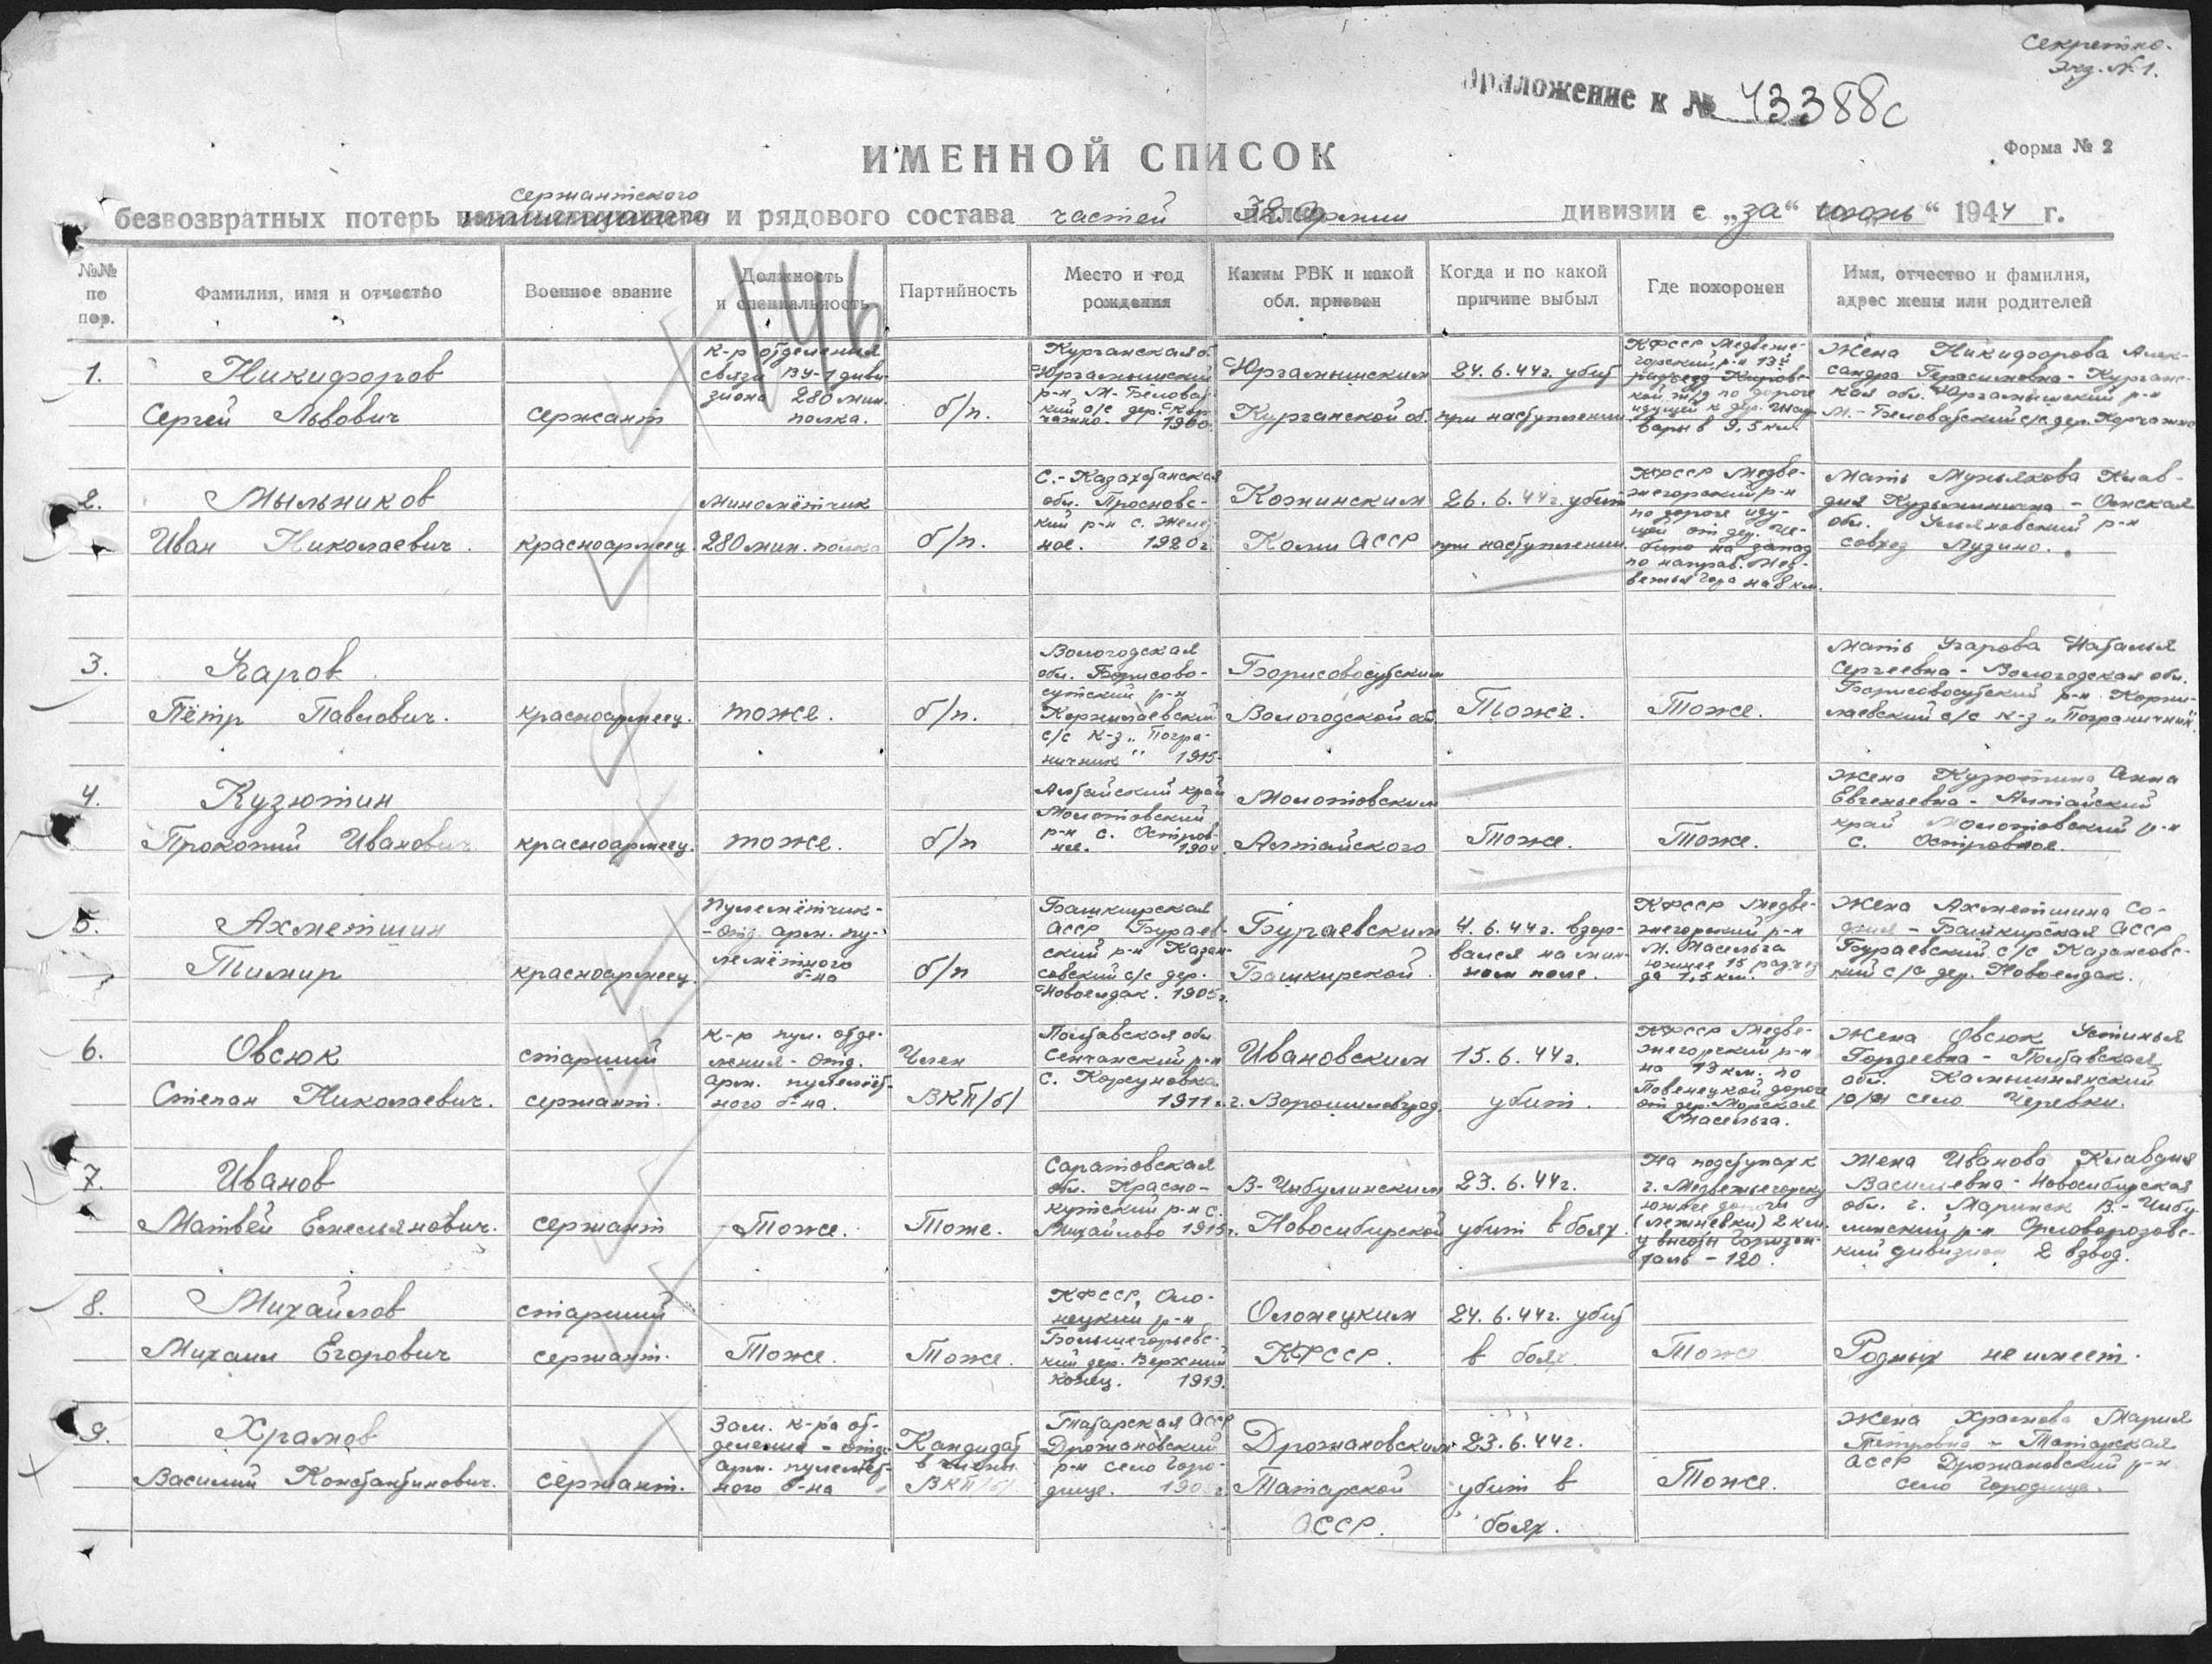 Секретно.
Экз. № 1.
Приложение к № 43388с
Форма № 2
ИМЕННОЙ СПИСОК
сержантского
безвозвратных потерь и рядового состава частей 32 Армии дивизии с „за“ июнь “ 1944 г.
№№ по пор.
Фамилия, имя и отчество
Военное звание
Должность и специальность
Партийность
Место и год рождения
Каким РВК и какой обл. призван
Когда и по какой причине выбыл
Где похоронен
Имя, отчество и фамилия, адрес жены или родителей
146
1.
Никифоров
Сергей Львович
сержант
к-р отделения
связи ВУ-1 диви-
зиона 280 мин.
полка.
б/п.
Курганская о.
Юргамышский
р-н М-Беловод-
кий с/с дер. Кор-
чажно. 1900.
Юргамышским
Курганской об.
24.6.44г. убит
при наступлении.
КФССР Медвеже-
горский р-н 13й
разъезд Кировс-
кой ж/д по дороге
идущей к дер.
в 9,5 км.
Жена Никифорова Алек-
сандра Герасимовна - Курганс-
кая обл. Юргамышский р-н
с/с дер. Корчажно
2.
Мыльников
Иван Николаевич.
красноармеец
миномётчик
280 мин. полка
б/п.
С.-Казахстанская
обл. Пресновс-
кий р-н с. Желез-
ное. 1920г
Кожвинским
Коми АССР
26.6.44г. убит
при наступлении.
КФССР Медве-
жегорский р-н
по дороге иду-
щей от дер. Че-
бино на запад
по направ. Мед-
вежья Гора на 8 км.
Мать Клав-
дия Кузьминична - Омская
обл. Ульяновский р-н
совхоз Лузино.
3.
Угаров
Пётр Павлович.
красноармеец.
тоже.
б/п.
Вологодская
обл. Борисово-
судский р-н
Коржилаевский
с/с к-з „Погра-
ничник“ 1915
Борисовосудским
Вологодской об.
Тоже.
Тоже.
Мать Угарова Наталья
Сергеевна - Вологодская обл.
Борисовосудский р-н Коржи-
лаевский с/с к-з „Пограничник“
4.
Кузютин
Прокопий Иванович
красноармеец.
тоже.
б/п
Алтайский край
Молотовский
р-н с. Остров-
ное. 1904
Молотовским
Алтайского
Тоже.
Тоже.
Жена Кузютина Анна
Евгеньевна - Алтайский
край Молотовский р-н
с. Островное.
5.
Ахметшин
Тимир
красноармеец.
пулемётчик-
-отд. арм. пу-
лемётного
б-на
б/п
Башкирская
АССР Бураев-
ский р-н Казан-
совский с/с дер.
Новоелдак. 1905г.
Бураевским
Башкирской
4.6.44г. взор-
вался на мин-
ном поле.
КФССР Медве-
жегорский р-н
М. Масельга
южнее 15 разъез-
да 1,5 км.
Жена Ахметшина Со-
- Башкирская АССР
Бураевский с/с Казансовс-
кий с/с дер. Новоелдак.
6.
Овсюк
Степан Николаевич.
старший
сержант.
к-р пул. отде-
ления - отд.
арм. пулемёт-
ного б-на.
Член
ВКП/б/
Полтавская обл
Сенчанский р-н
с. Корсуновка
1911 г.
Ивановским
Ворошиловград.
15.6.44г.
убит.
КФССР Медве-
жегорский р-н
на 13 км. по
Повенецкой дороге
от дер. Морская
Масельга.
Жена Овсюк Устинья
Гордеевна - Полтавская
обл. Камышнянский
р/н село Черевки.
7.
Иванов
Матвей Емельянович.
сержант
Тоже.
Тоже.
Саратовская
обл. Красно-
кутский р-н с.
Михайлово 1915г.
В-Чебулинским
Новосибирской
23.6.44г.
убит в боях.
На подступах к
г. Медвежьегорску
южнее дороги
(лежнёвки) 2 км.
у высоты горизон-
таль - 120.
Жена Иванова Клавдия
Васильевна - Новосибирская
обл. г. Мариинск В.-Чебу-
линский р-н Орловорозовс-
кий дивизион 2 взвод.
8.
Михайлов
Михаил Егорович
старший
сержант.
Тоже.
Тоже.
КФССР, Оло-
нецкий р-н
Большегорьевс-
кий дер. Верхний
конец. 1919.
Олонецким
КФССР.
24.6.44г. убит
в боях
Тоже
Родных не имеет.
9.
Храмов
Василий Константинович.
сержант.
Зам. к-ра от-
деления - отд.
арм. пулемёт-
ного б-на
Кандидат
в члены
ВКП/б/
Татарская АССР
Дрожановский
р-н село Горо-
дище.
Дрожановским
Татарской
АССР.
23.6.44г.
убит в
боях.
Тоже.
Жена Храмова Мария
Петровна - Татарская
АССР Дрожановский р-н
село Городище.